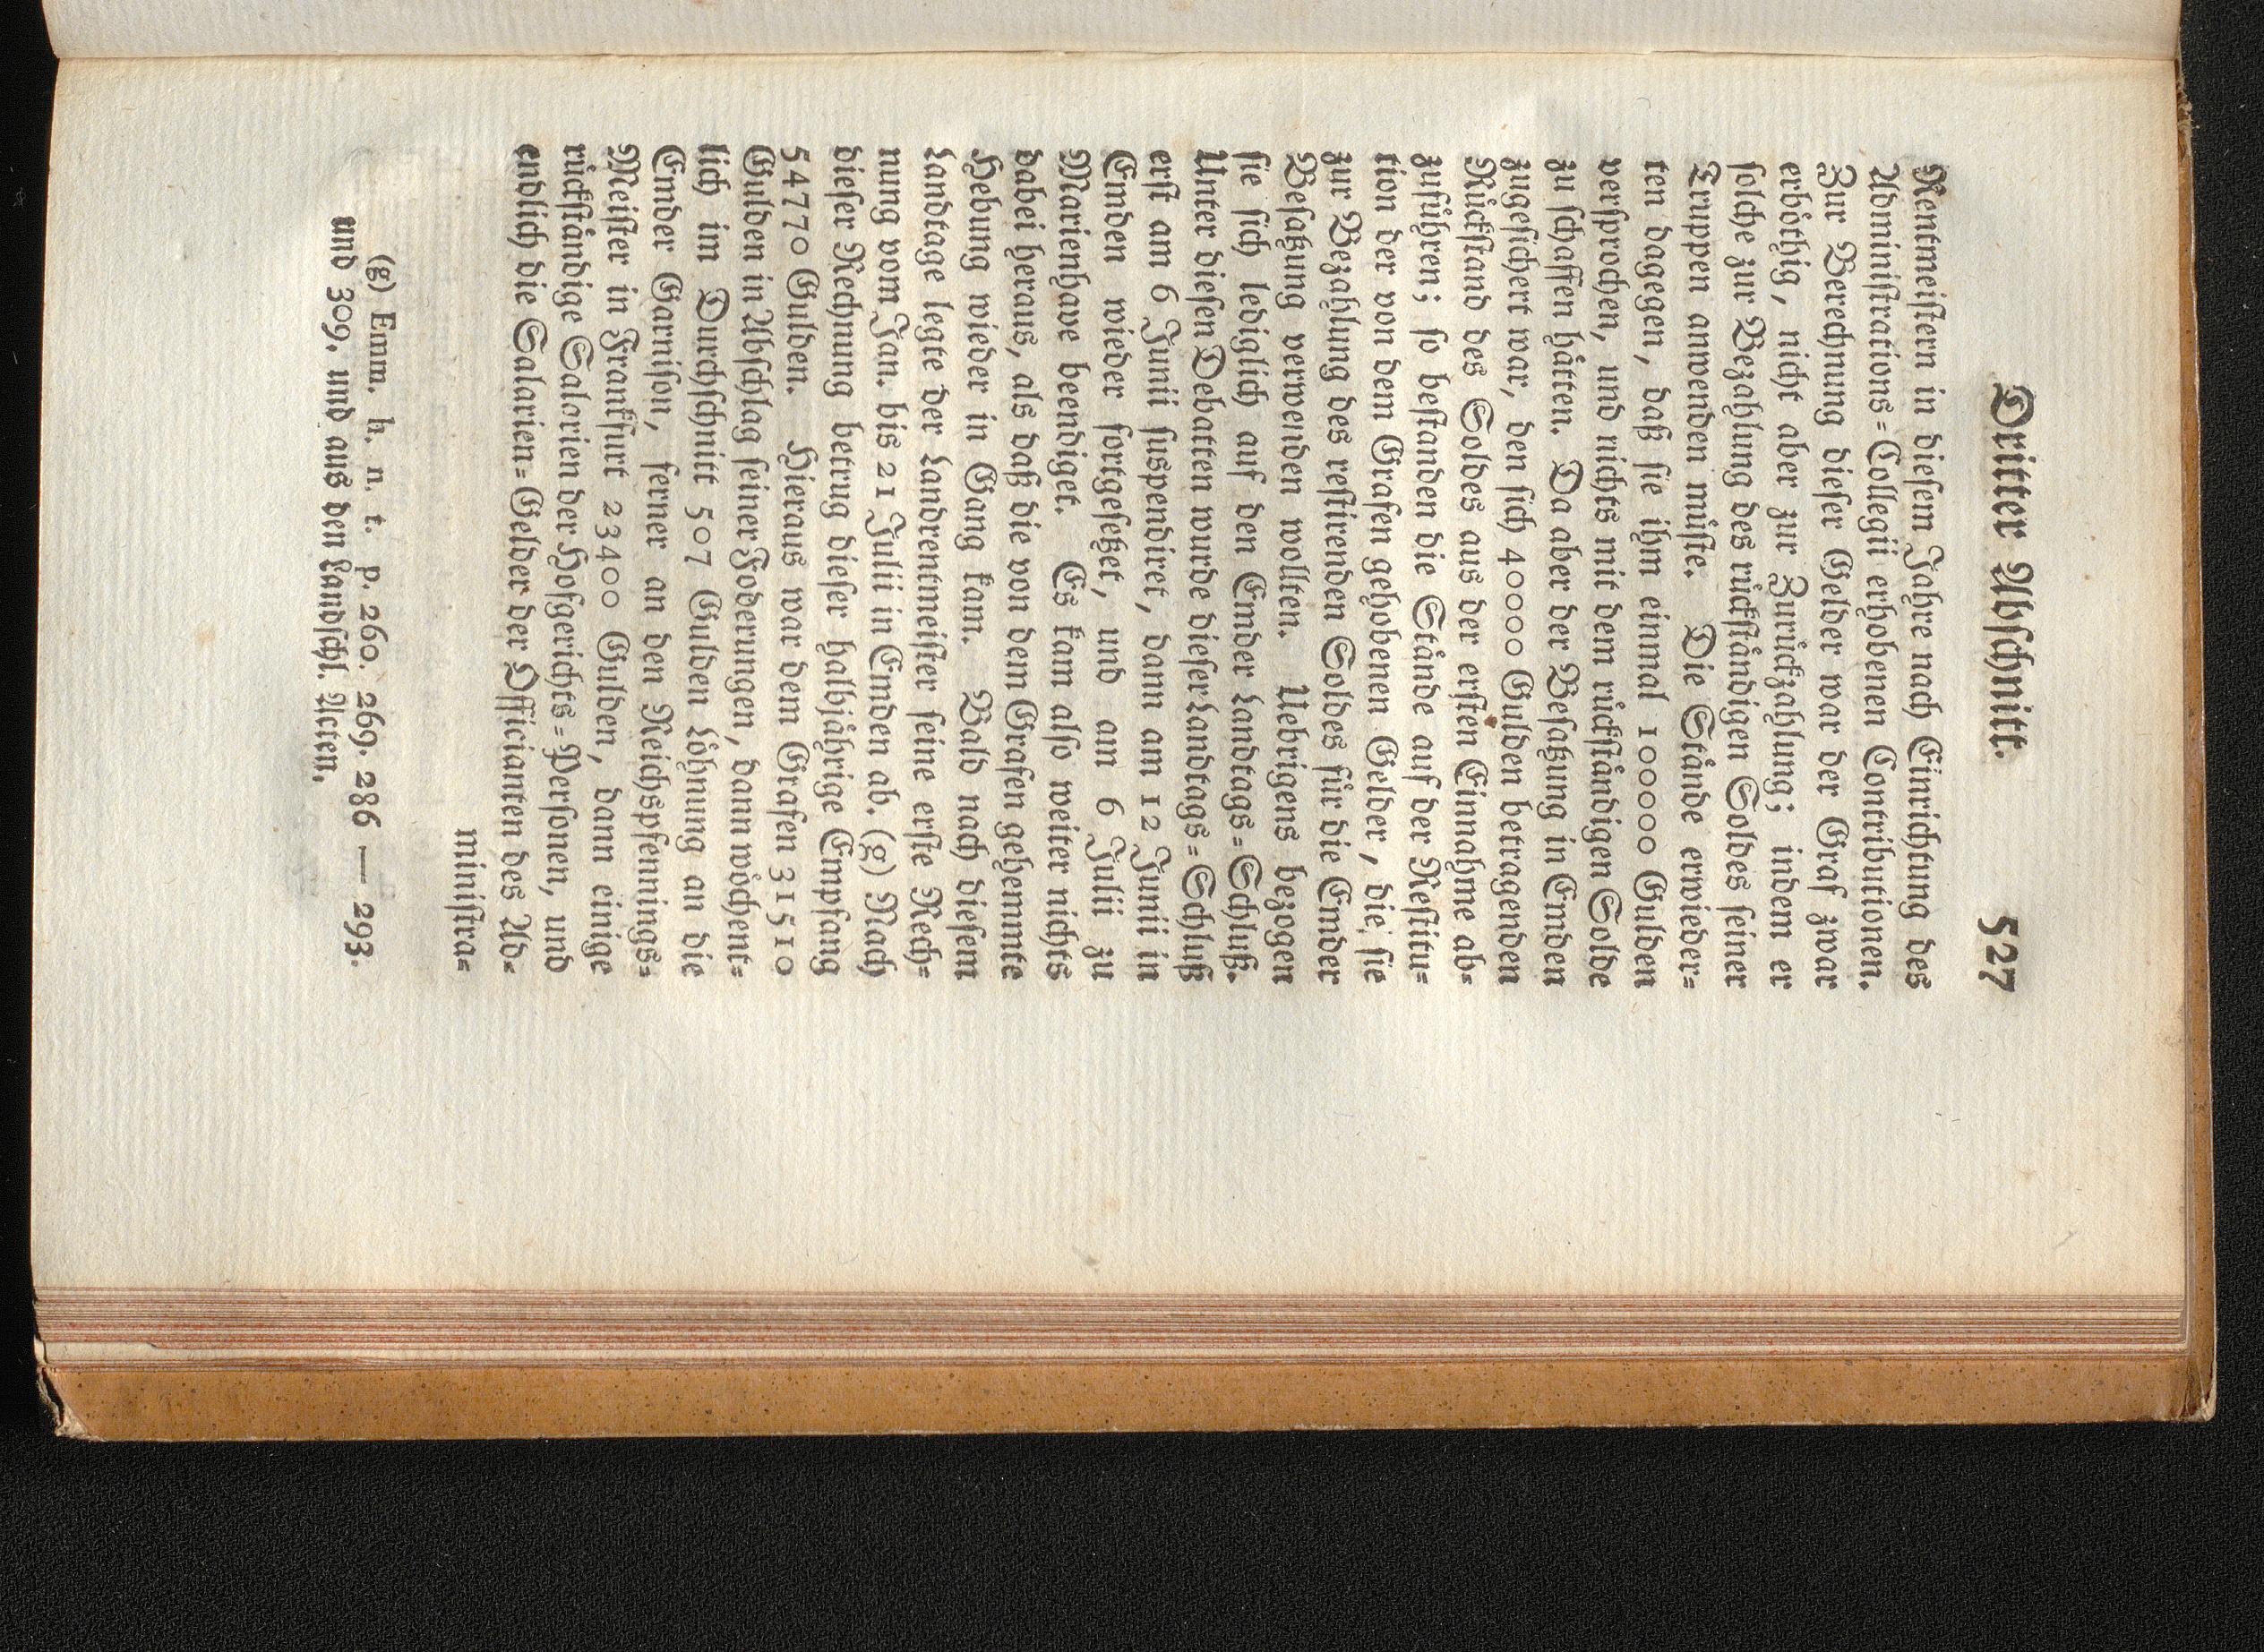 Dritter Abschnitt. 527
Rentmeistern in diesem Jahre nach Einrichtung des
Administrations-Collegii erhobenen Contributionen.
Zur Berechnung dieser Gelder war der Graf zwar
erböthig, nicht aber zur Zurückzahlung; indem er
solche zur Bezahlung des rückständigen Soldes seiner
Truppen anwenden müste. Die Stände erwieder-
ten dagegen, daß sie ihm einmal 10000 Gulden
versprochen, und nichts mit dem rückständigen Solde
zu schaffen hätten. Da aber der Besatzung in Emden
zugesichert war, den sich 40000 Gulden betragenden
Rückstand des Soldes aus der ersten Einnahme ab-
zuführen; so bestanden die Stände auf der Restitu-
tion der von dem Grafen gehobenen Gelder, die sie
zur Bezahlung des restirenden Soldes für die Emder
Besatzung verwenden wollten. Uebrigens bezogen
sie sich lediglich auf den Emder Landtags-Schluß.
Unter diesen Debatten wurde dieser Landtags-Schluß
erst am 6 Junii suspendiret, dann am 12 Junii in
Emden wieder fortgesetzet, und am 6 Julii zu
Marienhave beendiget. Es kam also weiter nichts
dabei heraus, als daß die von dem Grafen gehemmte
Hebung wieder in Gang kam. Bald nach diesem
Landtage legte der Landrentmeister seine erste Rech-
nung vom Jan. bis 21 Julii in Emden ab. (g) Nach
dieser Rechnung betrug dieser halbjährige Empfang
54770 Gulden. Hieraus war dem Grafen 31510
Gulden in Abschlag seiner Foderungen, dann wöchent-
lich im Durchschnitt 507 Gulden Löhnung an die
Emder Garnison, ferner an den Reichspfennings-
Meister in Frankfurt 23400 Gulden, dann einige
rückständige Salarien der Hofgerichts-Personen, und
endlich die Salarien-Gelder der Officianten des Ad-
ministra-
(g) Emm. h. n. t. p. 260. 269. 286 — 293.
und 309. und aus den Landschl. Acten.